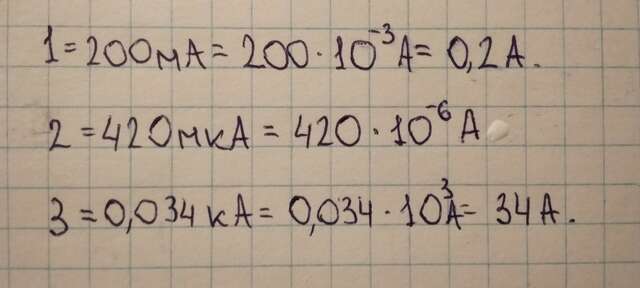 1=200мА=200·10⁻³А=0,2А.
2=420мкА=420·10⁻⁶А
3=0,034кА=0,034·10³А=34А.